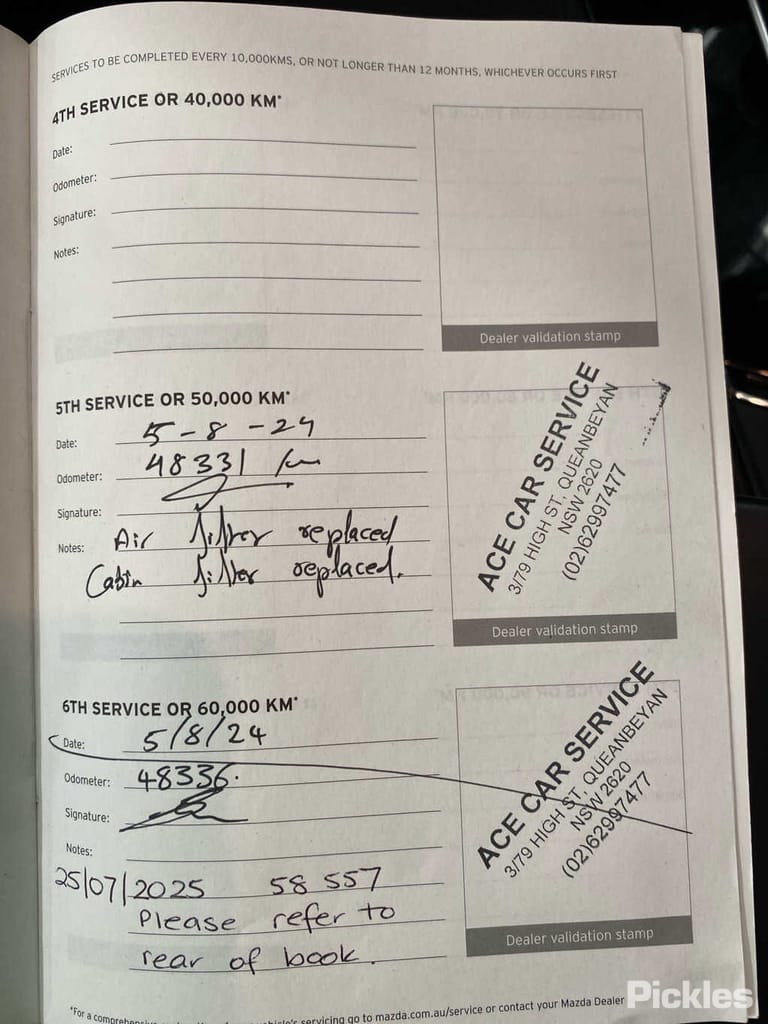 SERVICES TO BE COMPLETED EVERY 10,000KMS, OR NOT LONGER THAN 12 MONTHS, WHICHEVER OCCURS FIRST
4TH SERVICE OR 40,000 KM*
Date:
Odometer:
Signature:
Notes:
Dealer validation stamp
5TH SERVICE OR 50,000 KM*
Date: 5-8-24
Odometer: 48331 km
Signature:
Notes: Air filter replaced
Cabin filter replaced.
ACE CAR SERVICE
3/79 HIGH ST, QUEANBEYAN
NSW 2620
(02)62997477
Dealer validation stamp
6TH SERVICE OR 60,000 KM*
Date: 5/8/24
Odometer: 48336.
Signature:
Notes:
25/07/2025 58 557
Please refer to
rear of book.
ACE CAR SERVICE
3/79 HIGH ST, QUEANBEYAN
NSW 2620
(02)62997477
Dealer validation stamp
*For a servicing go to mazda.com.au/service or contact your Mazda Dealer
Pickles